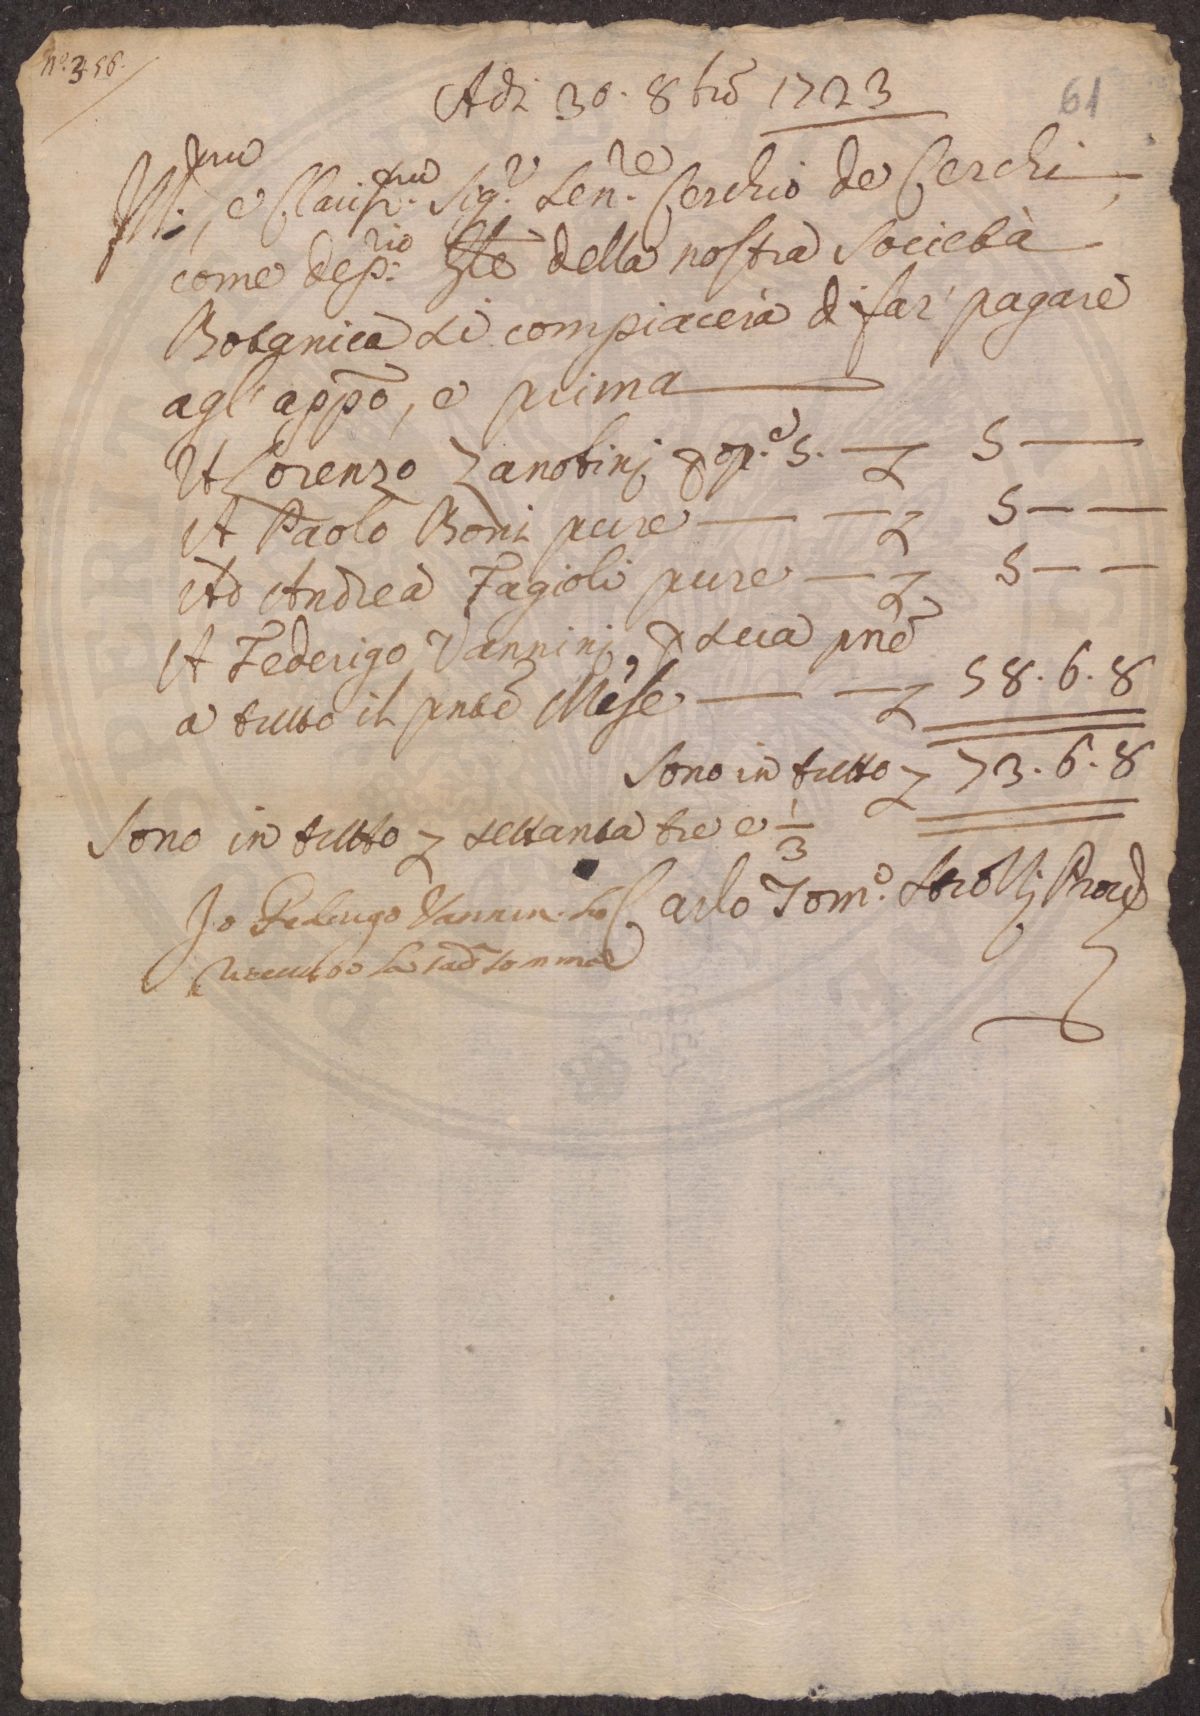 N.° 356.
61
Adi 30. 8bre 1723
Ill.mo, e Clariss.mo Sig.r Sen.re Cerchio de Cerchi,
come dep.rio della nostra Società
Botanica si compiacerà di far' pagare
agl'appõ, e prima
A Lorenzo Zanobini p op.e 5. — £ 5 —
A Paolo Boni pure — — £ 5 — —
Ad Andrea Fagioli pure — £ 5 — —
A Federigo Vannini, p sua pnẽ
a tutto il pntẽ Mese — — £ 58. 6. 8
Sono in tutto £ 73. 6. 8
Sono in tutto £ settanta tre e 1/3
Carlo Tom.o Strozzi Proved
Io Federigo Vannini ho
riceuto la sad somma